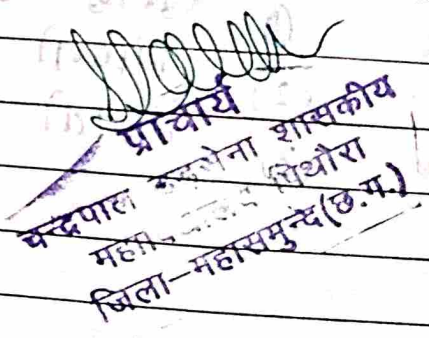 प्राचार्य
चन्द्रपाल शासकीय
पिथौरा
जिला-महासमुन्द(छ.ग.)